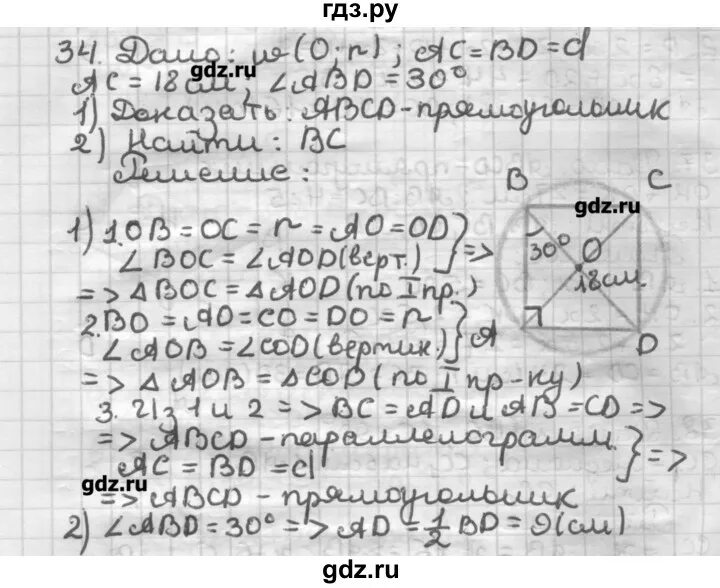 гдз.ру
34. Дано: w (O; r); AC = BD = d
gdz.ru
AC = 18 см, ∠ABD = 30°
1) Доказать: ABCD - прямоугольник
2) Найти: BC
Решение:
B C
gdz.ru
1) 1. OB = OC = r = AO = OD } =>
∠BOC = ∠AOD (верт.)
30° O
18 см.
=> △BOC = △AOD (по I пр.)
2. BO = AO = CO = DO = r }
A
∠AOB = ∠COD (вертик)
D
=> △AOB = △COD (по I пр-ку)
3. Из 1 и 2 => BC = AD и AB = CD =>
=> ABCD - параллелограмм. } =>
AC = BD = d
gdz.ru
=> ABCD - прямоугольник
2) ∠ABD = 30° => AD = 1/2 BD = 9 (см)
gdz.ru